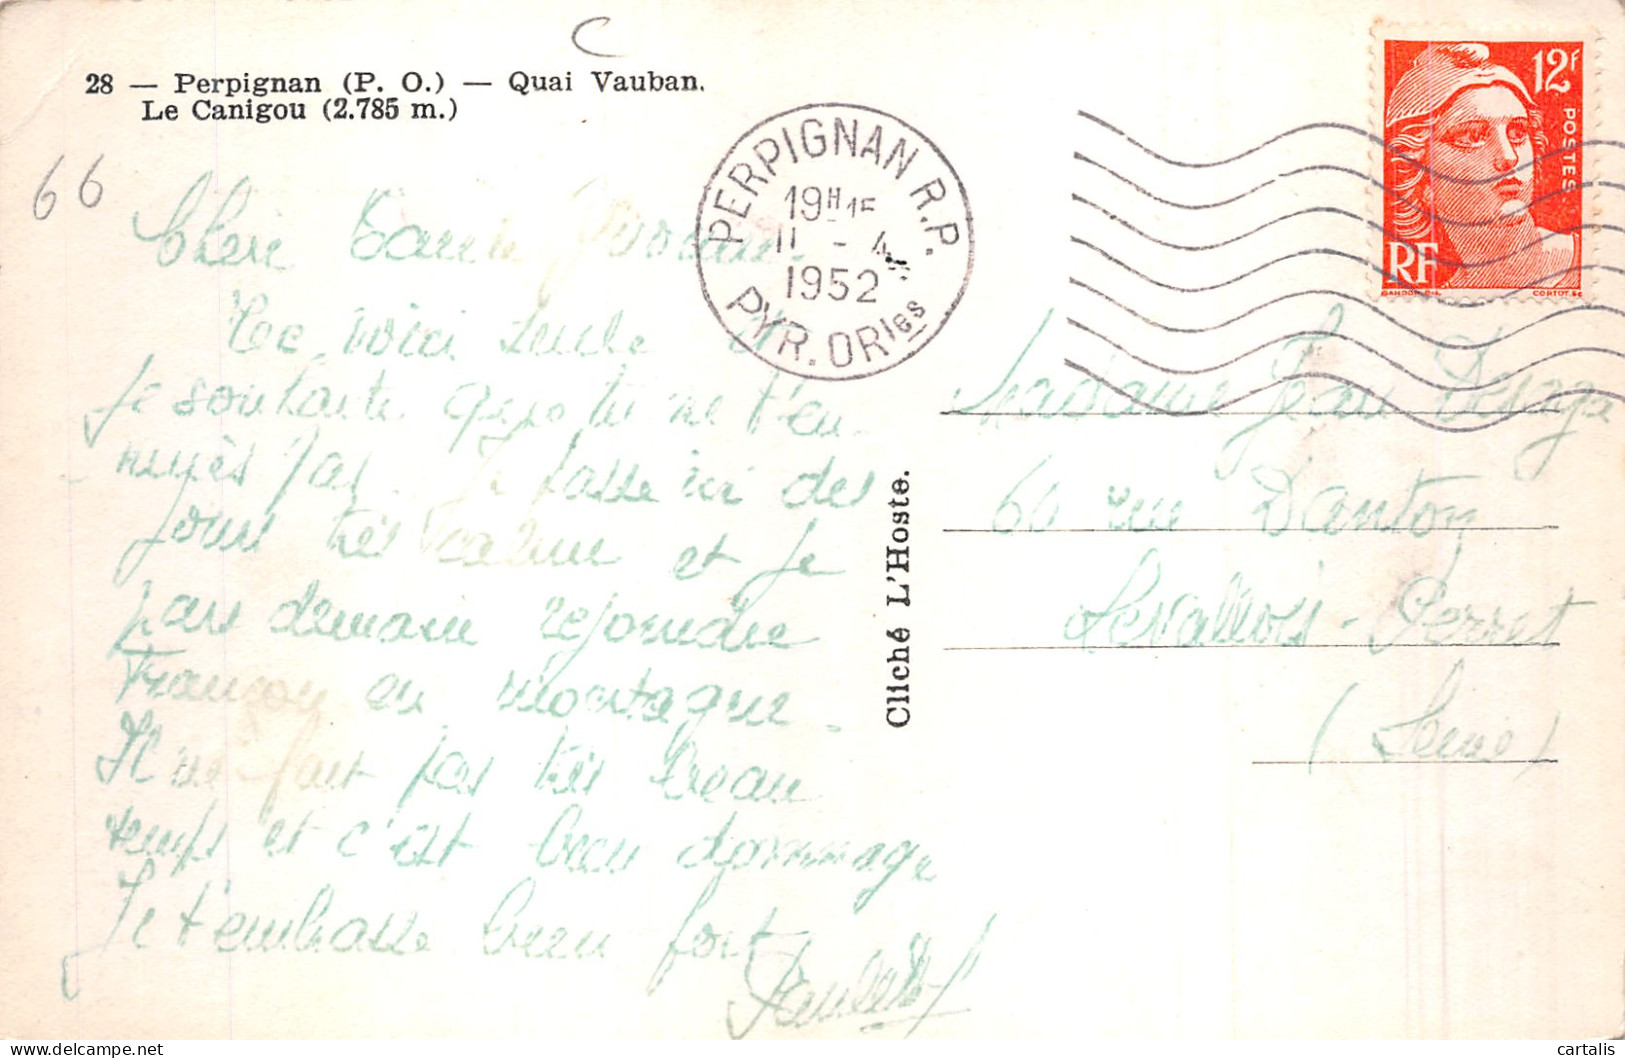 C
28 — Perpignan (P. O.) — Quai Vauban.
Le Canigou (2.785 m.)
66
PERPIGNAN R.P.
19H15
11 - 4
1952
PYR. ORles
12F
POSTES
RF
GANDON
CORTOT.SC
voici seule
Je souhaite que tu ne t'en
nuyes pas. Je passe ici des
jours très calme et je
pars demain rejoindre
en montagne.
Il ne fait pas très beau
temps et c'est bien dommage
Je t'embrasse bien fort
Cliché L'Hoste.
Madame Jean
60 rue Danton
Levallois-Perret
(Seine)
cartalis